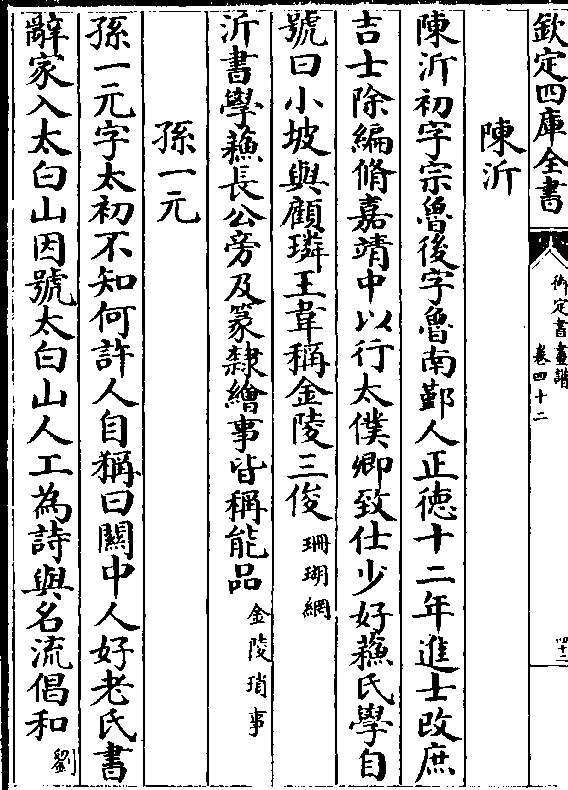 欽定四庫全書
御定書畫譜
卷四十二
四十二
陳沂
陳沂初字宗魯後字魯南鄞人正徳十二年進士改庶
吉士除編脩嘉靖中以行太僕卿致仕少好蘓氏學自
號曰小坡與顧璘王韋稱金陵三俊珊瑚網
沂書學蘓長公旁及篆隸繪事皆稱能品金陵瑣事
孫一元
孫一元字太初不知何許人自稱曰關中人好老氏書
辭家入太白山因號太白山人工為詩與名流倡和劉